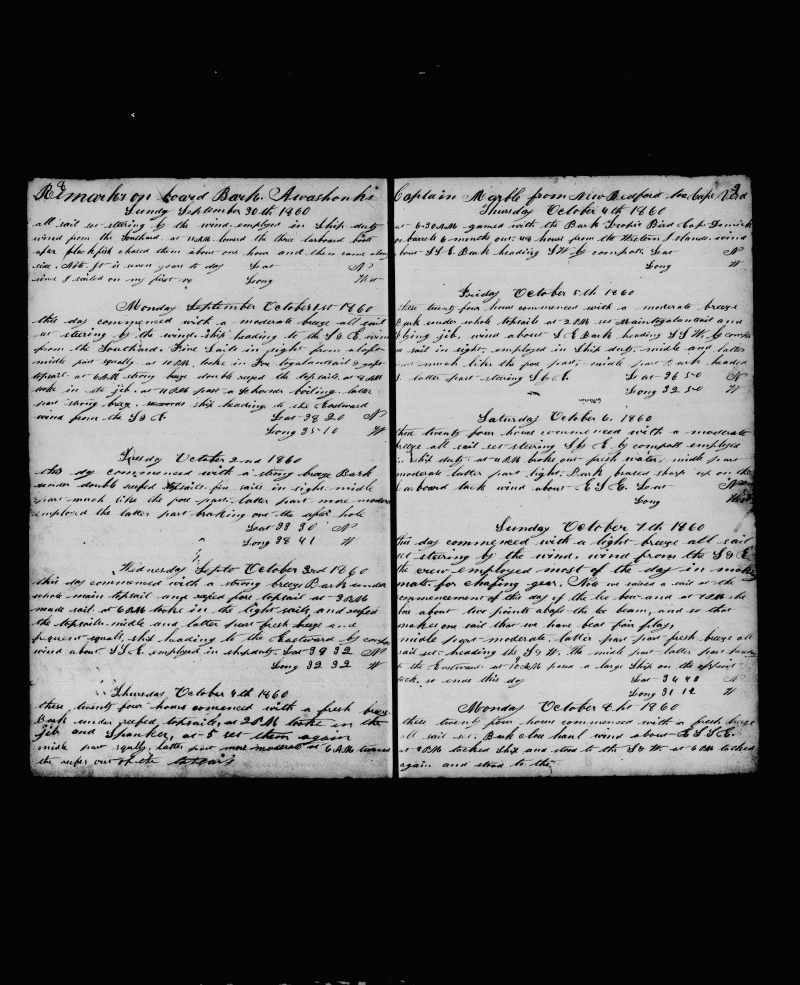 8
Remarks on board Bark Awashonks
Sunday September 30th 1860
all sail set steering by the wind employed in Ship duty
wind from the Southard. at 11 AM lowerd the three larboard boats
after blackfish chased them about one hour and then came along
side. Note. It is seven years to day Lat N
since I sailed on my first Long West
Monday September October 1st 1860
this day commenced with a moderate breeze all sail
set steering by the wind. ship heading to the S & E wind
from the Southard. Five Sails in sight from aloft
middle part squally at 11 PM, took in Fore topgalantsail &
topsail. at 6 AM strong breeze double reefed the topsails. at 8 AM
took in the jib. at 11 AM past a Schooner boiling. latter
part strong breeze. ship heading to the Eastward
wind from the S & E. Lat 38 20 N
Long 35-10 W
Tuesday October 2nd 1860
this day commenced with a strong breeze Bark
under double reefed topsails. five sails in sight. middle
part much like the fore part. latter part more moderate
employed the latter part braking out the after hole
Lat 38 30 N
Long 38 41 W
Wednesday Septo October 3rd 1860
this day commenced with a strong breeze Bark under
whole main topsail and reefed fore topsail at 3 PM
made sail. at 6 PM tooke in the light sails, and reefed
the topsails. middle and latter part fresh breeze and
frequent squals, ship heading to the Eastward by compas
wind about S S E. employed in shipduty. Lat 38 32 N
Long 32 32 W
Thursday October 4th 1860
these twenty four hours comenced with a fresh breeze
Bark under reefed, topsails, at 2 PM tooke in the
jib and Spanker, at 5 set them again
midle part squly. latter part more moderate at 6 AM turned
the reefes out of the topsails
9
Captain Marble from New Bedford to Cape Verd
Thursday October 4th 1860
at 6-30 AM gamed with the Bark Tropic Bird Capt
barrels 6 months out. 48 hours from the Western Islands. wind
bout S S E Bark heading S W by compass, Lat N
Long W
Friday October 5th 1860
these twenty four hours commenced with a moderate breeze
Bark under whole topsails at 2 PM set Maintopgalantsail and
flying jib, wind about S E Bark heading S S W by compass
a sail in sight. employed in Ship duty. midle and latter
part much like the fore part. midle part bark headed
latter part stering S by E. Lat 36 50 N
Long 32 50 W
Saturday October 6, 1860
these twenty four hours commenced with a moderate
breeze all sail set steering S by E by compass employed
in Ship duty. at 4 PM broke out fresh water, midle part
moderate latter part light. Bark braced sharp up on the
Larboard tack wind about E S E. Lat N
Long West
Sunday October 7th 1860
this day commenced with a light breeze all sail
set steering by the wind. wind from the S & E
the crew employed most of the day in making
mats for chafing gear, Note we raised a sail at the
commencement of this day of the lee bow and at 12 M she
bore about two points abaft the lee beam, and so that
makes one sail that we have beat fair play,
midle part moderate. latter part part fresh breeze all
sail set. heading the S & W. the midle part latter part heading
to the Eastward. at 10 AM pased a large Ship on the oppisit
tack, so ends this day Lat 34 48 N
Long 31 12 W
Monday October 8th 1860
these twenty four hours commenced with a fresh breeze
all sail set. Bark close haul wind about E S S E.
at 2 PM tacked Ship and stood to the S & W. at 6 PM tacked
again and stood to the